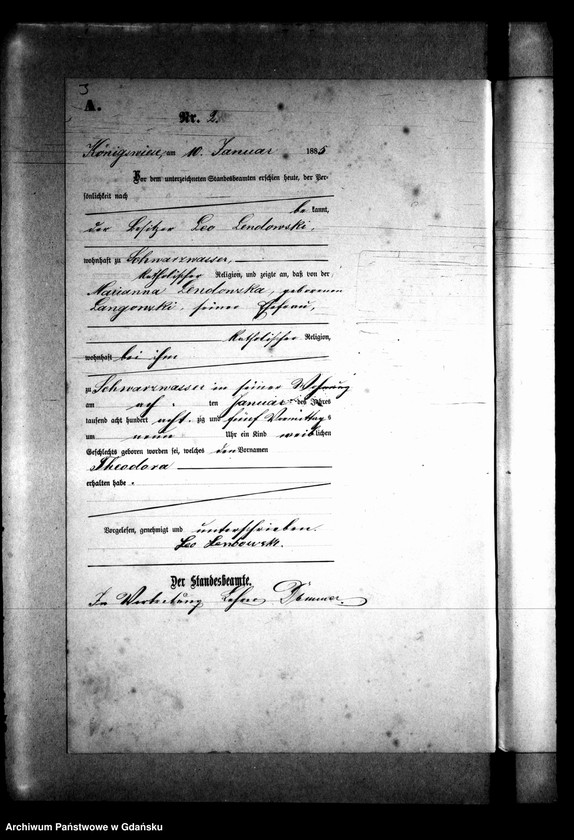 A.
Nr. 2.
Königswiese, am 10. Januar 1885
Vor dem unterzeichneten Standesbeamten erschien heute, der Per-
sönlichkeit nach
be kannt,
der Besitzer Leo Lendowski,
wohnhaft zu Schwarzwasser,
katholischer Religion, und zeigte an, daß von der
Marianna Lendowska, geborenen
Langowski, seiner Ehefrau,
katholischer Religion,
wohnhaft bei ihm
zu Schwarzwasser in seiner Wohnung
am acht ten Januar des Jahres
tausend acht hundert acht zig und fünf Vormittags
um neun Uhr ein Kind weiblichen
Geschlechts geboren worden sei, welches den Vornamen
Theodora
erhalten habe.
Vorgelesen, genehmigt und unterschrieben.
Leo Lendowski.
Der Standesbeamte.
In Vertretung
Archiwum Państwowe w Gdańsku